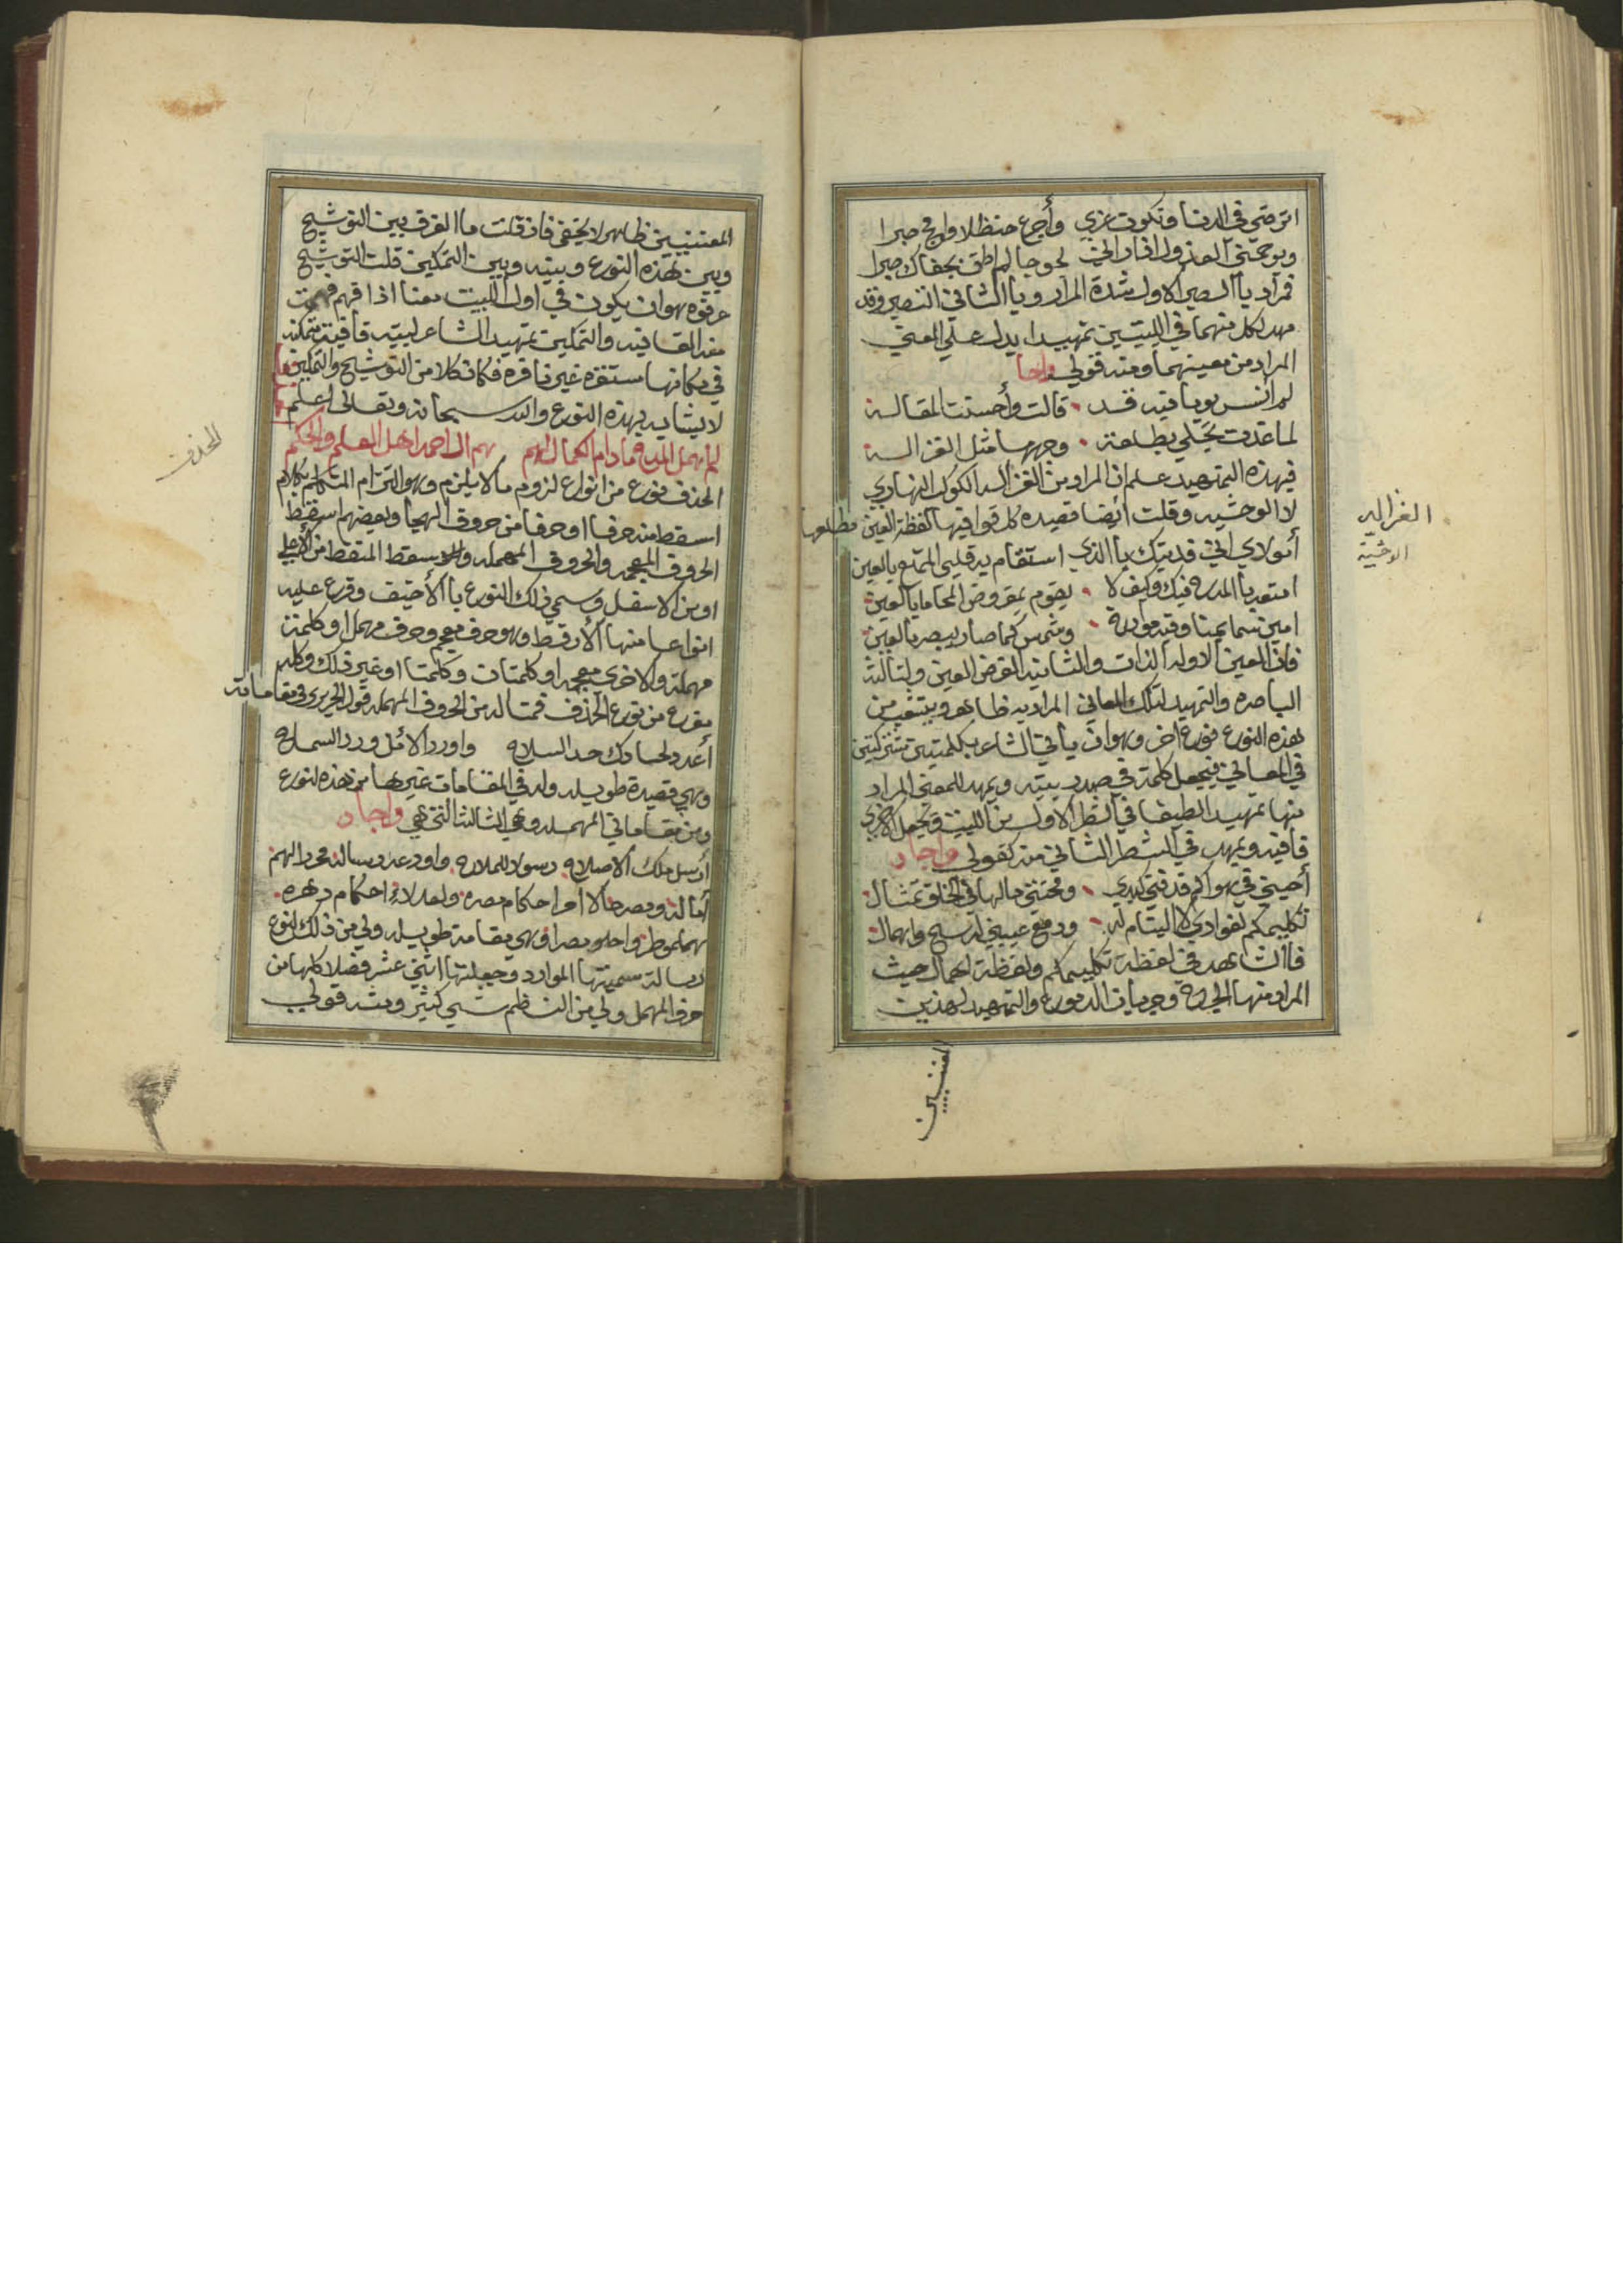 اترضي في الدنا وتكون غزي وأجرع حنظلا واجج صبرا
ويوحجني العذول اذا راني لحوجا لم اطق بجفاك صبرا
فمراد يا الصبر الاول شدة المرار ويا الثاني التصبر وقد
مهد لكل منهما في البيتين تمهيدا يدل علي المعني
المراد من معينهما ومنه قولي واجا
لم أنس يوما فيه قد قالت وأحسنت المقالة
لما غدت تجلي بطلعة وجهها مثل الغزالة
فبهذه التمهيد علم ان المراد من الغزاله الكوكب النهاري
لا الوحشيه وقلت ايضا قصيده كل قوافيها لفظة العين مطلعها
أمولاي اني فديتك يا الذي استقام به قلبي المتمتع يا العين
امتع يا المدح فيك وكيف لا يقوم بمفروض المحامايا العين
امين سما يمنا وفيه مودرة وشمس كما صار يبصر يا العين
فان العين الاوله الذات والثانيه الفرض العين والثالثه
الباصره والتمهيد لتلك المعاني المراد به ظاهر ويتشعب من
هذه النوع نوع اخر وهو ان يأتي الشاعر بكلمتين مشتركتين
في المعاني فيجعل كلمة في صدر بيته ويمهد للمعني المراد
منها تمهيد الطيفا في الشطر الاول من البيت ويجعل الاخري
قافيه ويمهد في الشطر الثاني منه كقولي واجاد
أحبتي في هواكم قد فني كبدي ومحنتي ما لها في الخلق تمثال
تكليمكم لفوادي لا اليتام له ودمع عيني له سح وابهمال
فا الشاهد في لفظة تكليمكم ولفظة اهمال حيث
المراد منها الجروح وجريان الدموع والتمهيد لهذين
الغزاليه
الوحشية
المعنيين
المعنيين ظاهر لا يخفي فان قلت ما الفرق بين التوشيح
وبين هذه النوع وبينه وبين التمكين قلت التوشيح
عرفوه هو ان يكون في اول البيت معنا اذا فهم فهمت
منه القافيه والتمكين تمهيد الشاعر لبيته قافية متمكنه
في مكانها مستقره غير نافره فكان كلا من التوشيح والتمكين
لا يشابه بهذه النوع والله سبحانه وتعالي اعلم
لم يهمل المدح ما دام الكمال لهم هم ال احمد اهل العلم والحكم
الحذف نوع من انواع لزوم ما لا يلزم وهو التزام المتكلم بكلام
اسقط منه حرفا او حرفا من حروف الهجا وبعضهم اسقط
الحروف المعجمه والحروف المهمله واسقط المنقط من الاعلي
او من الاسفل وسمي ذلك النوع با الأخيف وفرع عليه
انواعا منها الأرقط وهو حرف معجم وحرف مهمل او كلمة
مهملة والاخري معجمه او كلمتان وكلمتا او غير ذلك وكله
مفرع من نوع الحذف فمثاله من الحروف المهمله قول الحريري في مقاماته
أعدد لحسادك حد السلاح واورد الامل ورد السماح
وهي قصيدة طويله وله في المقامات غيرها من هذه النوع
ومن مقاماتي المهمله وهي الثالثة التي هي واجاد
أرسل ملك الاصلاح رسولا للملاح واودعه رساله محررالهم
أماله وصرحالا امر احكام مصره ولعدلاء احكام دهره
مهما وطر واحلو مصرا وهي مقامة طويله ولي من ذلك النوع
رسالة سميتها الموارد وجعلتها اثني عشر فصلا كلها من
حرف المهمل ولي من النظم شي كثير ومنه قولي
الحذف